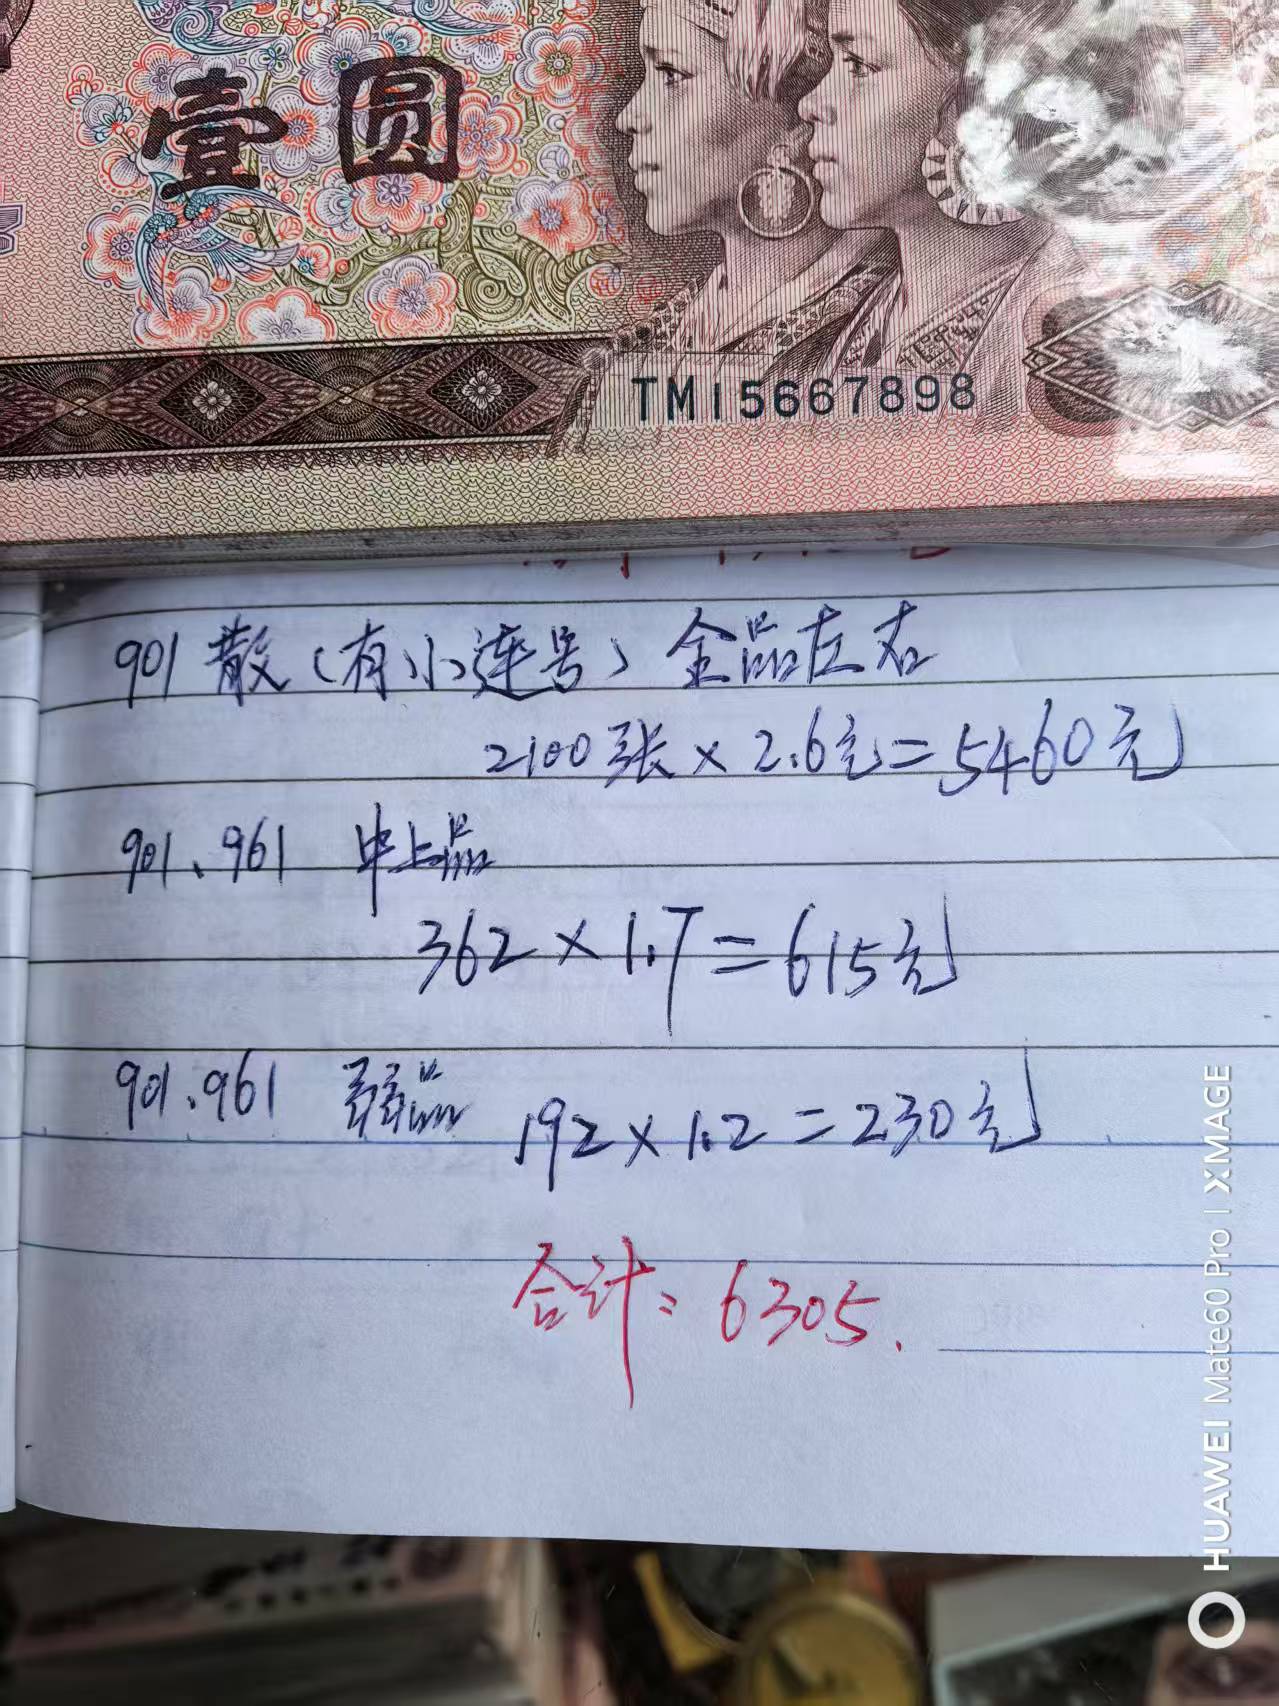 壹圆
TM15667898
1
901 散（有小连号）全品左右
2100张×2.6元=5460元
901、961 中上品
362×1.7=615元
901、961 弱品 192×1.2=230元
合计：6305.
HUAWEI Mate60 Pro | XMAGE